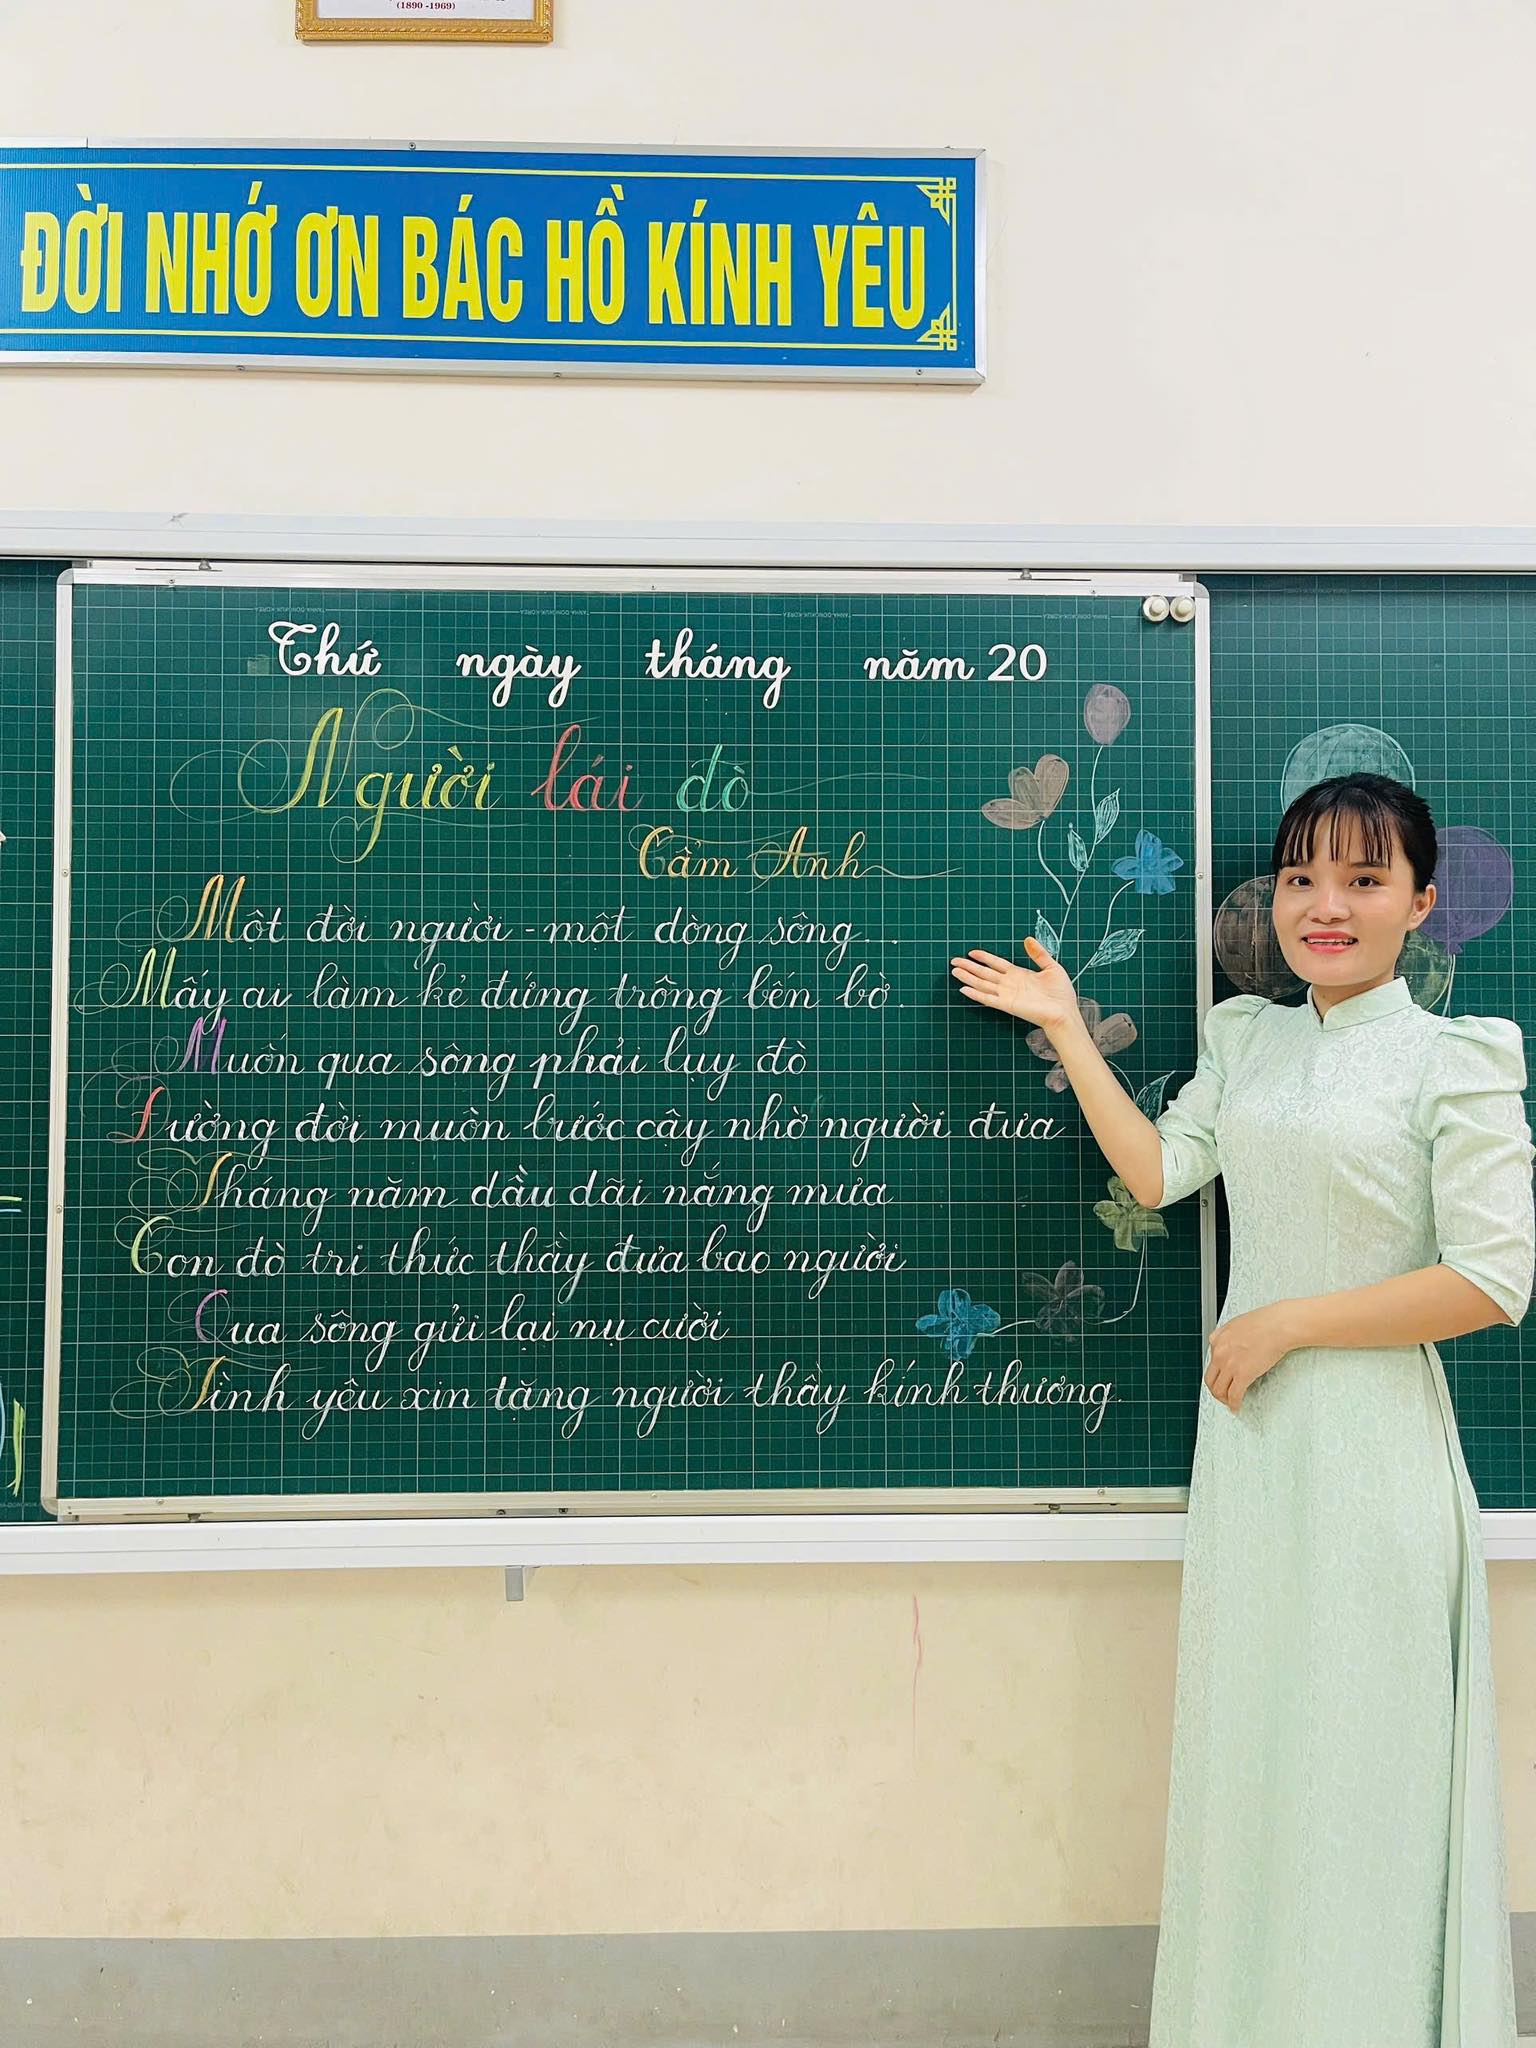 (1890 -1969)
ĐỜI NHỚ ƠN BÁC HỒ KÍNH YÊU
Thứ ngày tháng năm 20
Người lái đò
Cẩm Anh
Một đời người - một dòng sông...
Mấy ai làm kẻ đứng trông bến bờ.
Muốn qua sông phải lụy đò
Đường đời muôn bước cậy nhờ người đưa
Tháng năm dầu dãi nắng mưa
Con đò tri thức thầy đưa bao người
Qua sông gửi lại nụ cười
Tình yêu xin tặng người thầy kính thương.